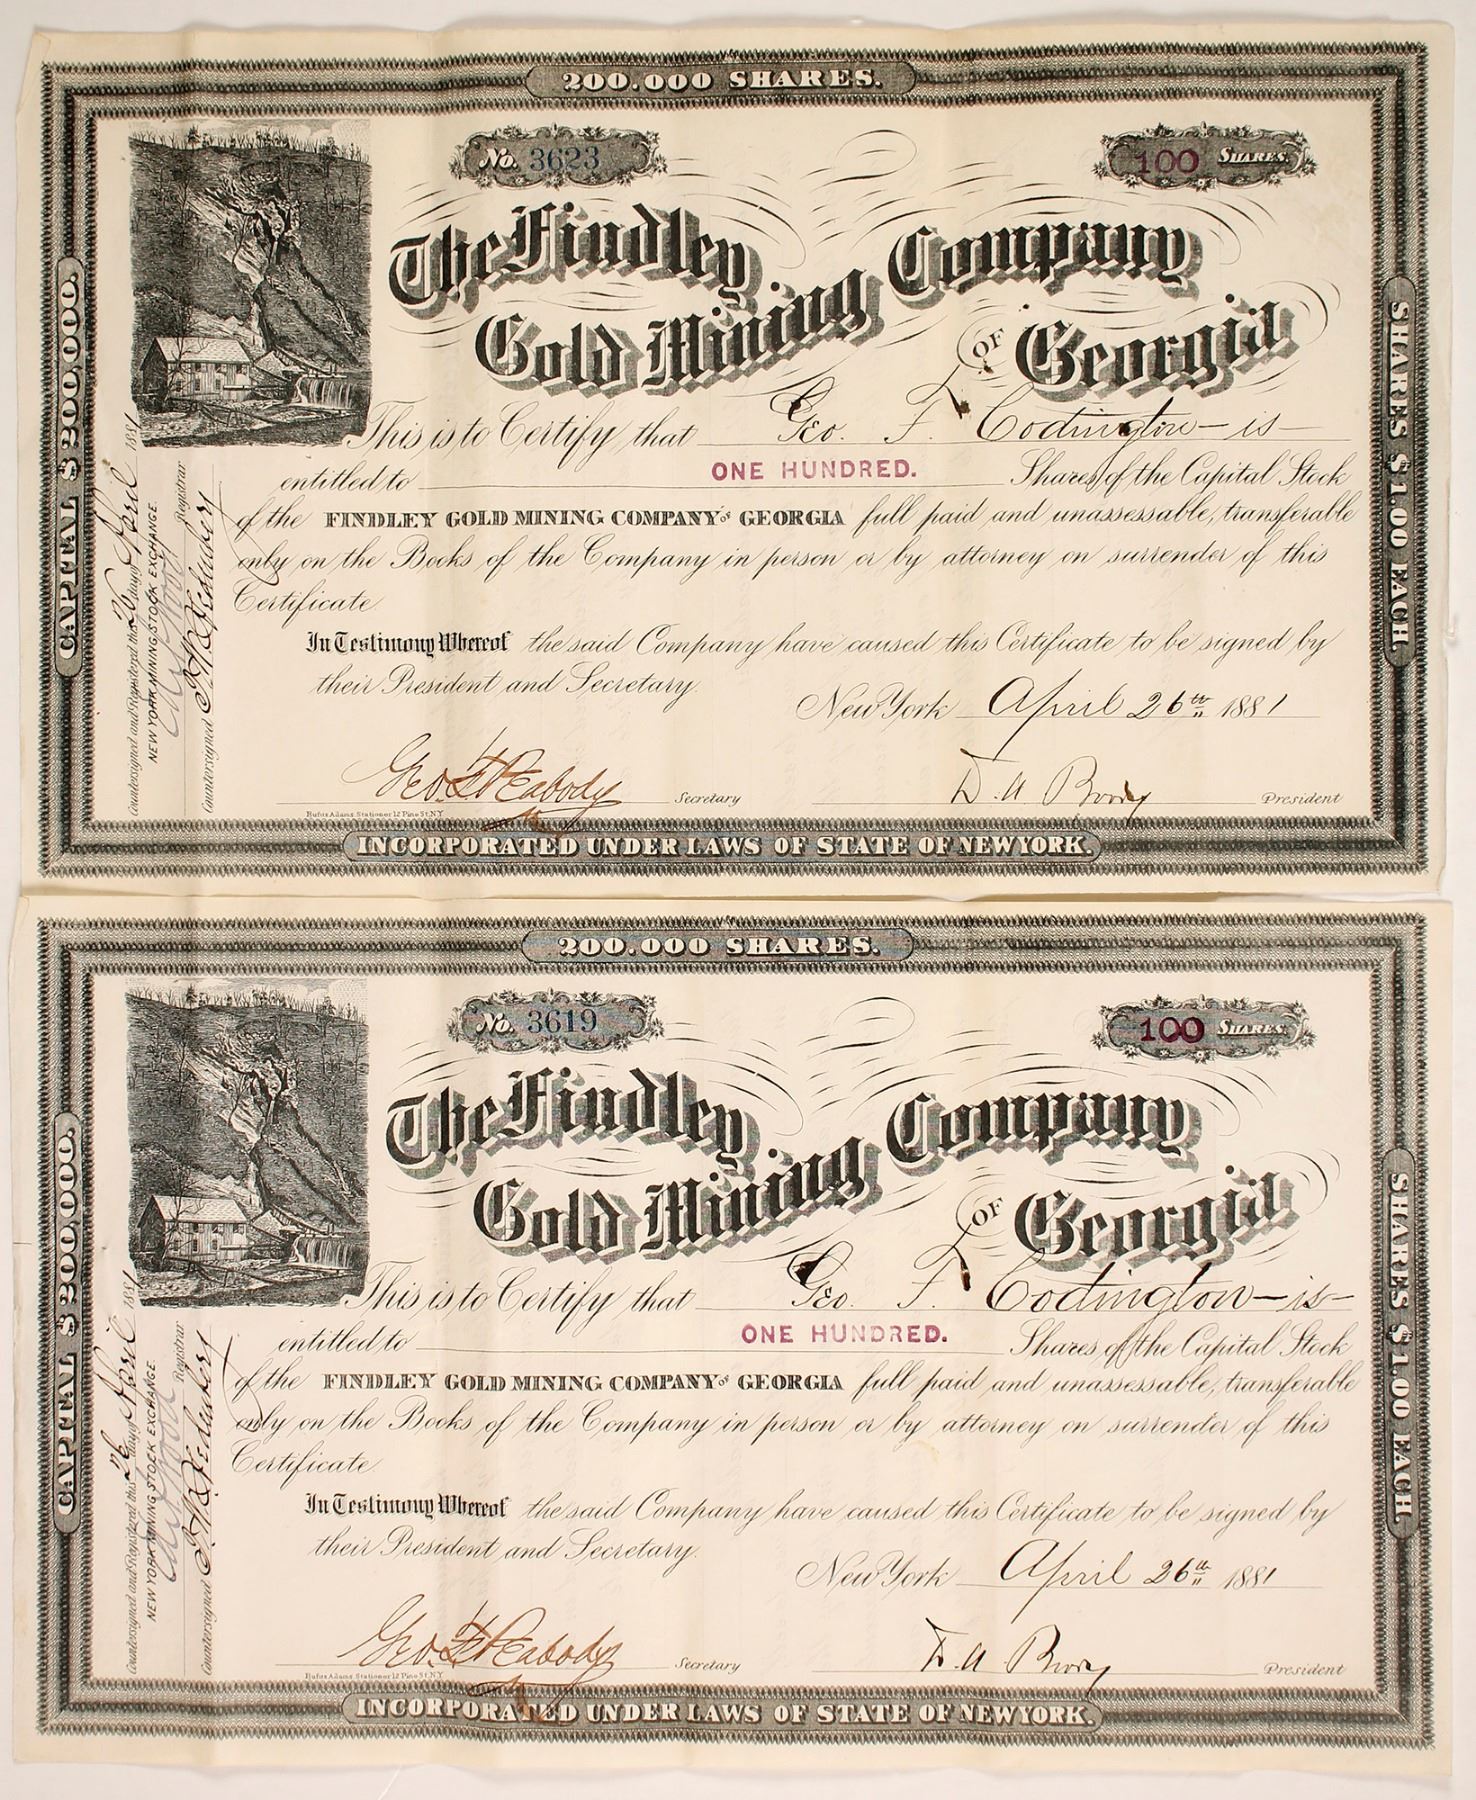 200.000 SHARES.
No. 3623
100 SHARES.
The Findley Gold Mining Company
OF Georgia
This is to Certify that Geo. F. Codington - is -
entitled to ONE HUNDRED. Shares of the Capital Stock
of the FINDLEY GOLD MINING COMPANY OF GEORGIA full paid and unassessable, transferable
only on the Books of the Company in person or by attorney on surrender of this
Certificate.
In Testimony Whereof the said Company have caused this Certificate to be signed by
their President and Secretary.
New York April 26th 1881
Geo. H. Peabody Secretary
President
Rufus Adams Stationer 12 Pine St. N.Y.
INCORPORATED UNDER LAWS OF STATE OF NEW YORK.
CAPITAL $200,000.
SHARES $1.00 EACH
Countersigned and Registered this 26 day of April 1881
NEW YORK MINING STOCK EXCHANGE.
Registrar
Countersigned
200.000 SHARES.
No. 3619
100 SHARES.
The Findley Gold Mining Company
OF Georgia
This is to Certify that Geo. F. Codington - is -
entitled to ONE HUNDRED. Shares of the Capital Stock
of the FINDLEY GOLD MINING COMPANY OF GEORGIA full paid and unassessable, transferable
only on the Books of the Company in person or by attorney on surrender of this
Certificate.
In Testimony Whereof the said Company have caused this Certificate to be signed by
their President and Secretary.
New York April 26th 1881
Geo. H. Peabody Secretary
President
Rufus Adams Stationer 12 Pine St. N.Y.
INCORPORATED UNDER LAWS OF STATE OF NEW YORK.
CAPITAL $200,000.
SHARES $1.00 EACH
Countersigned and Registered this 26 day of April 1881
NEW YORK MINING STOCK EXCHANGE
Registrar
Countersigned